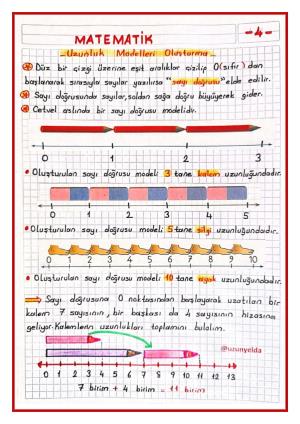 MATEMATİK
-4-
Uzunluk Modelleri Oluşturma
Düz bir çizgi üzerine eşit aralıklar çizilip 0(sıfır)'dan
başlanarak sırasıyla sayılar yazılırsa "sayı doğrusu" elde edilir.
Sayı doğrusunda sayılar, soldan sağa doğru büyüyerek gider.
Cetvel aslında bir sayı doğrusu modelidir.
0 1 2 3
Oluşturulan sayı doğrusu modeli 3 tane kalem uzunluğundadır.
0 1 2 3 4 5
Oluşturulan sayı doğrusu modeli 5 tane silgi uzunluğundadır.
0 1 2 3 4 5 6 7 8 9 10
Oluşturulan sayı doğrusu modeli 10 tane ayak uzunluğundadır.
Sayı doğrusuna 0 noktasından başlayarak uzatılan bir
kalem 7 sayısının, bir başkası da 4 sayısının hizasına
geliyor. Kalemlerin uzunlukları toplamını bulalım.
@uzunyelda
0 1 2 3 4 5 6 7 8 9 10 11 12 13
7 birim + 4 birim = 11 birim